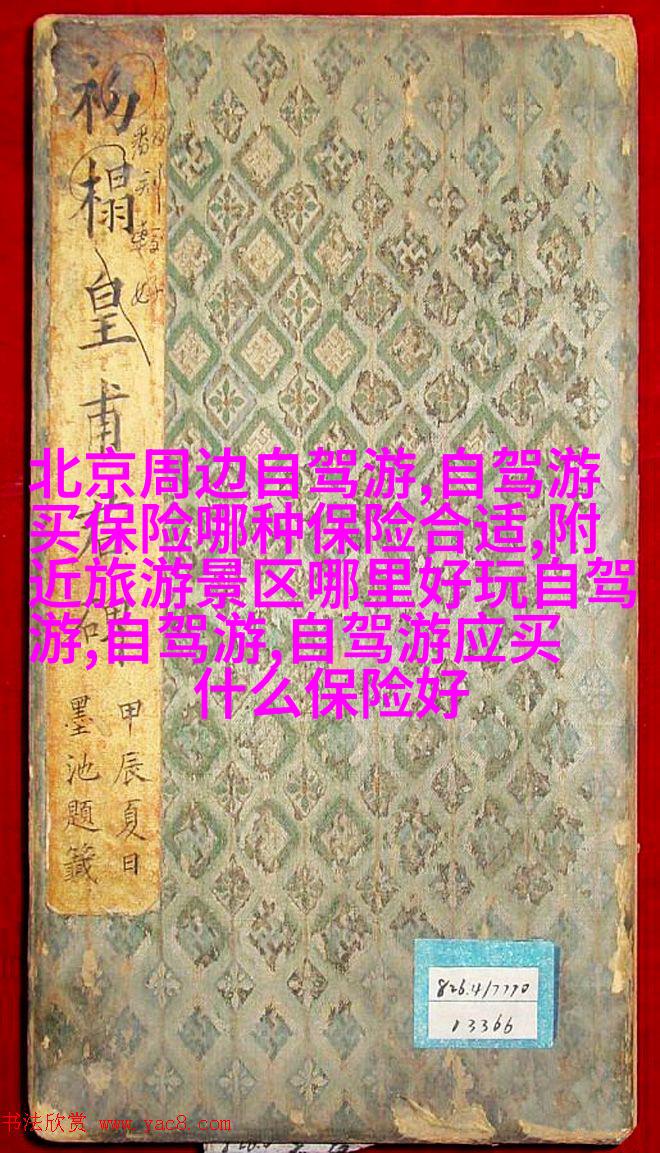 初榻皇甫君碑
甲辰夏日
墨池題籤
北京周边自驾游,自驾游
买保险哪种保险合适,附
近旅游景区哪里好玩自驾
游,自驾游,自驾游应买
什么保险好
826.4/7770
13366
书法欣赏 www.yac8.com